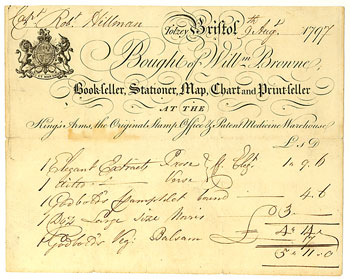 Capt Robt Hillman
Tolzey Bristol 9th Augt 1797
Bought of Willm Browne,
Bookseller, Stationer, Map, Chart and Printseller
AT THE
King's Arms, the Original Stamp Office & Patent Medicine Warehouse
L s D
1 Elegant Extracts Prose 1 0 9. 6
1 ditto Verse
1 Godbold's Pamphlet bound 4. 6
Large size
Godbold's Veg: Balsam
5 11 0